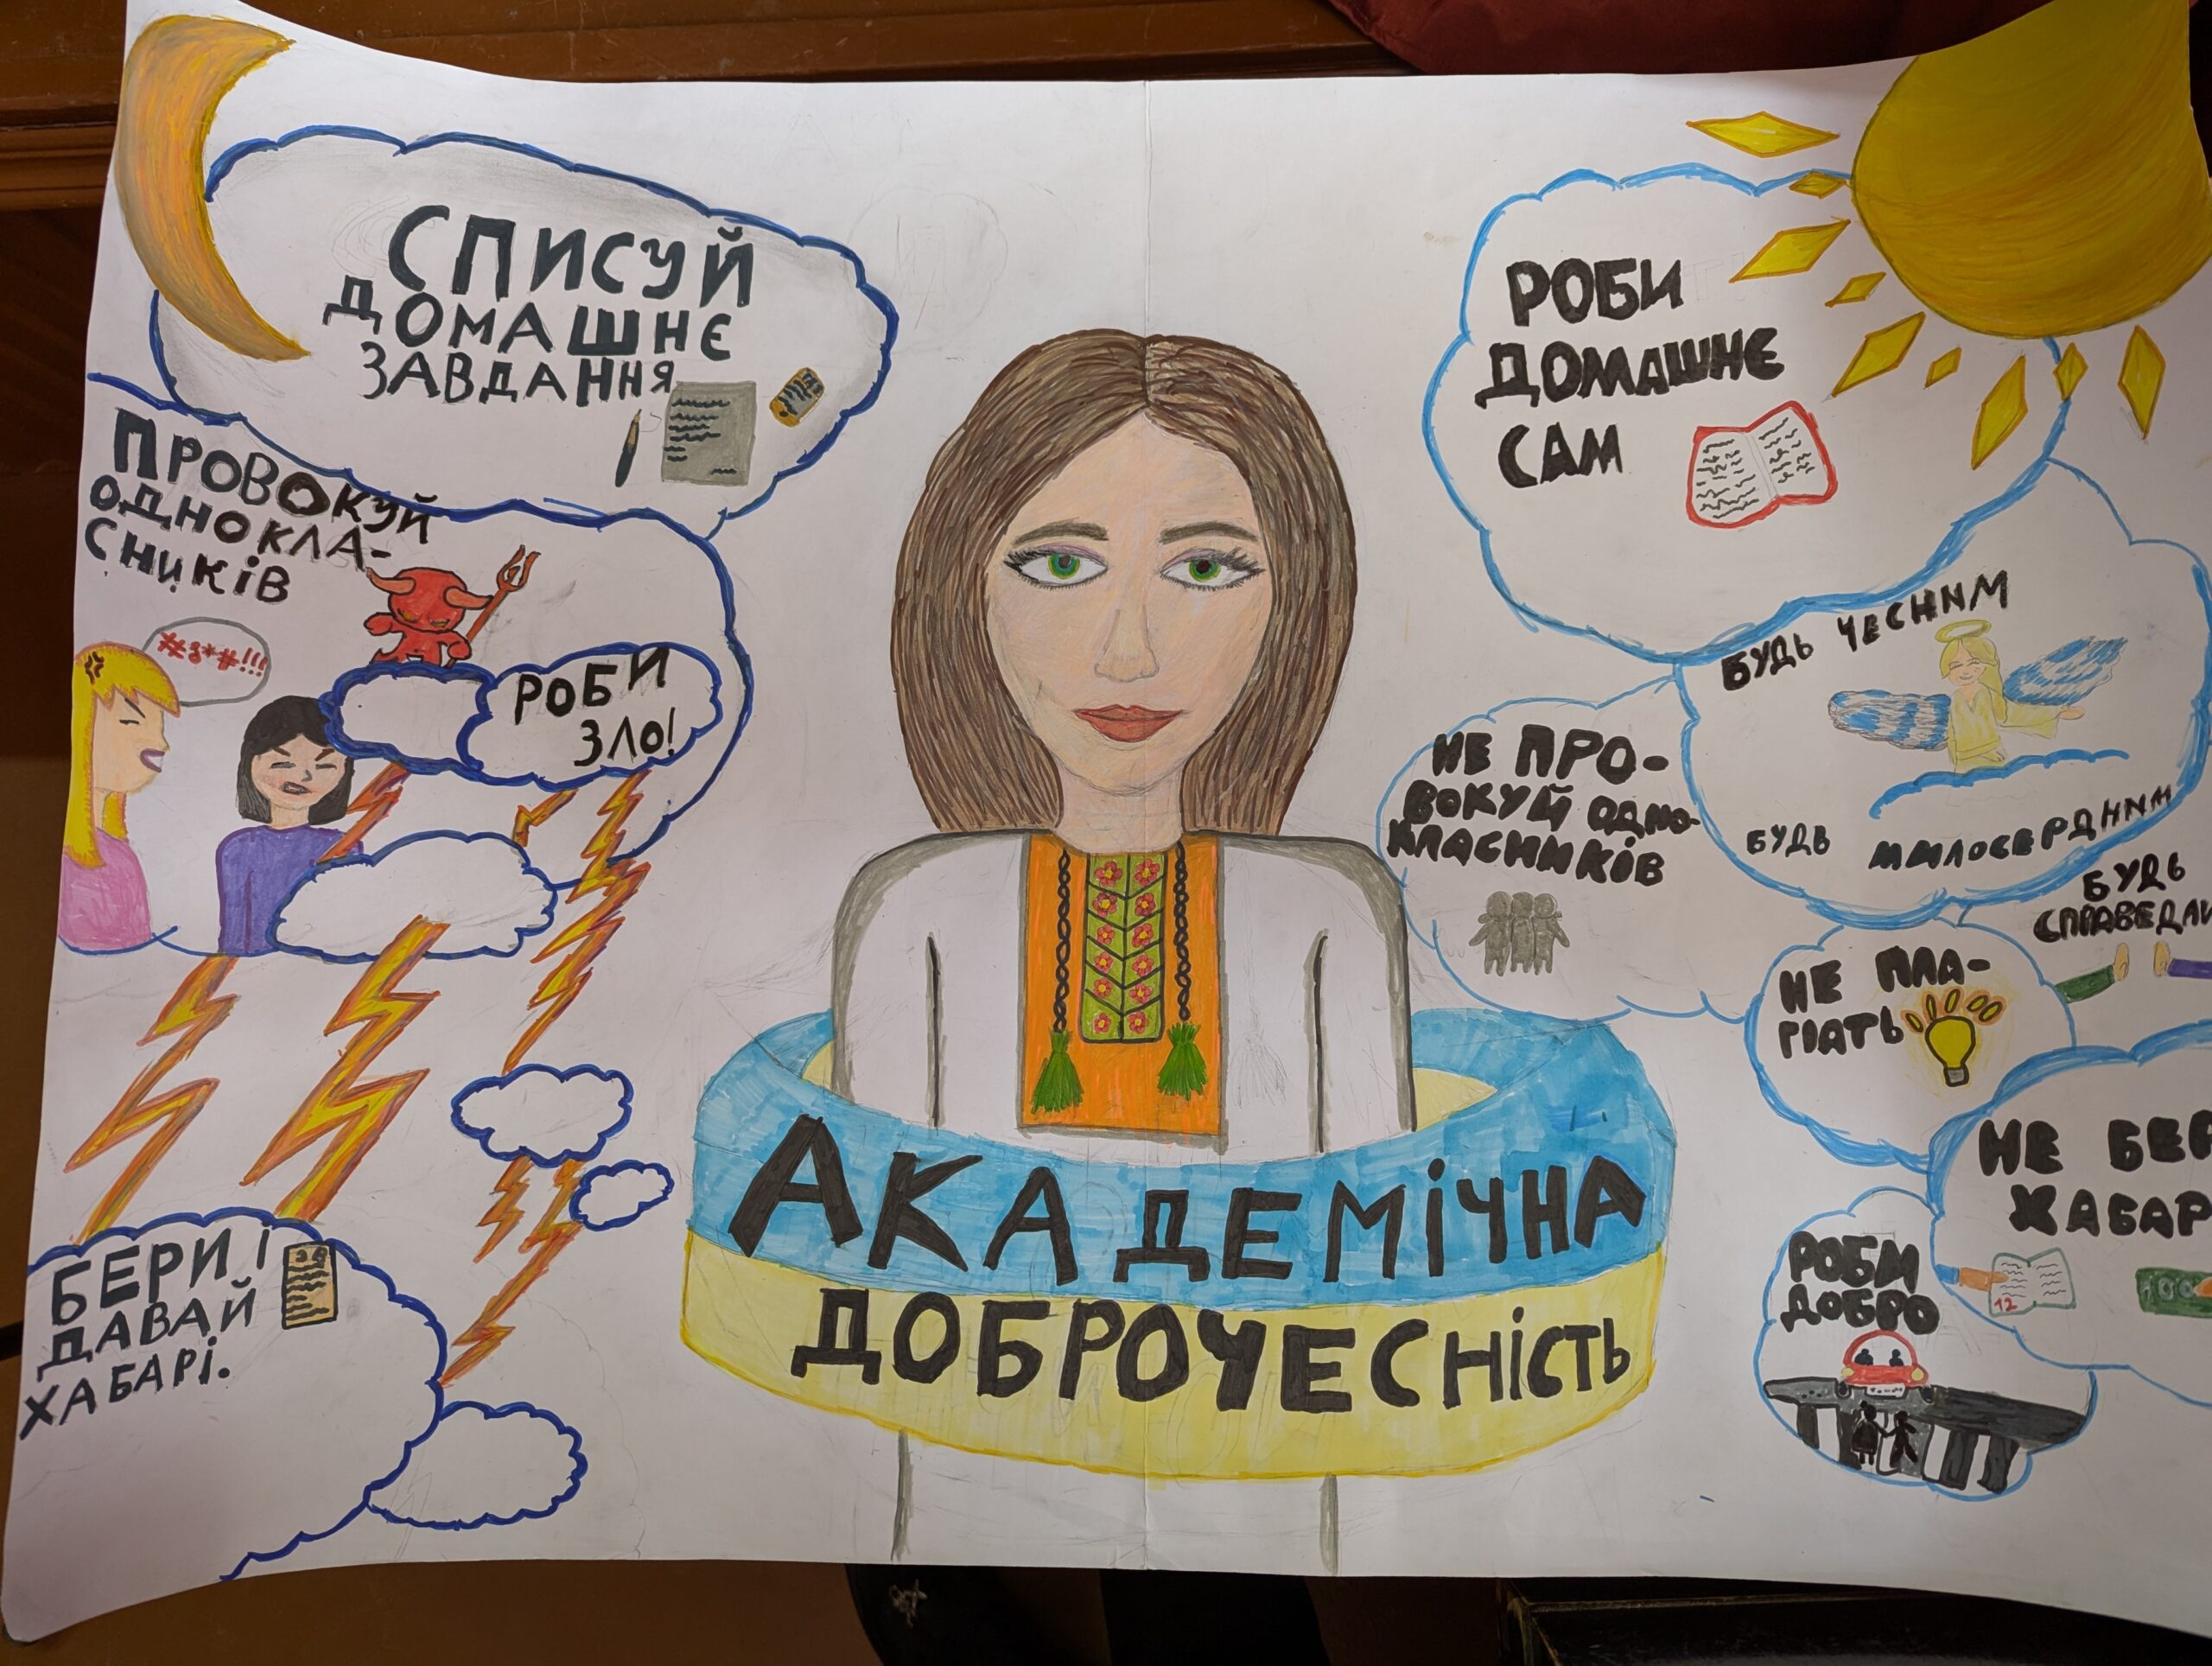 СПИСУЙ
ДОМАШНЄ
ЗАВДАННЯ
ПРОВОКУЙ
ОДНОКЛА-
СНИКІВ
#&*#!!!
РОБИ
ЗЛО!
БЕРИ І
ДАВАЙ
ХАБАРІ.
АКАДЕМІЧНА
ДОБРОЧЕСНІСТЬ
РОБИ
ДОМАШНЄ
САМ
БУДЬ ЧЕСНИМ
БУДЬ МИЛОСЕРДНИМ
НЕ ПРО-
ВОКУЙ ОДНО-
КЛАСНИКІВ
БУДЬ
СПРАВЕДЛИ
НЕ ПЛА-
ГІАТЬ
НЕ БЕР
ХАБАР
12
100
РОБИ
ДОБРО